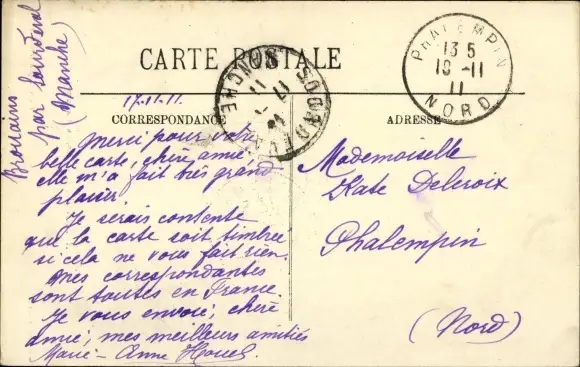 Brouains
par Sourdeval
(Manche)
CARTE POSTALE
17-11-11.
CORRESPONDANCE
ADRESSE
Merci pour votre
belle carte, chère amie,
elle m'a fait très grand
plaisir.
Je serais contente
que la carte soit timbrée
si cela ne vous fait rien.
Mes correspondantes
sont toutes en France.
Je vous envoie, chère
amie, mes meilleurs amitiés
Marie-Anne Houel.
Mademoiselle
Kate Delcroix
Phalempin
(Nord)
PHALEMPIN
13 5
18 -11
11
NORD
SOURDEVAL
MANCHE
17
11
11